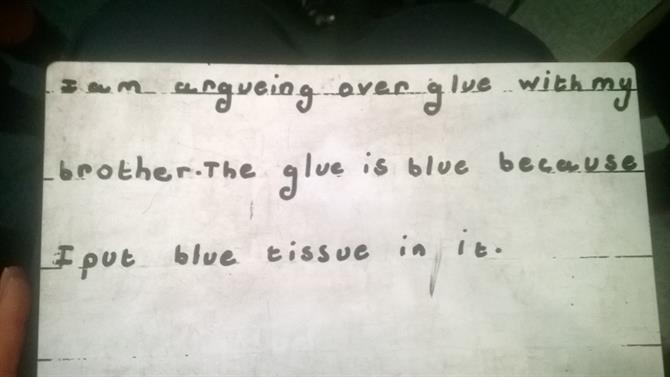 I am argueing over glue with my
brother. The glue is blue because
I put blue tissue in it.